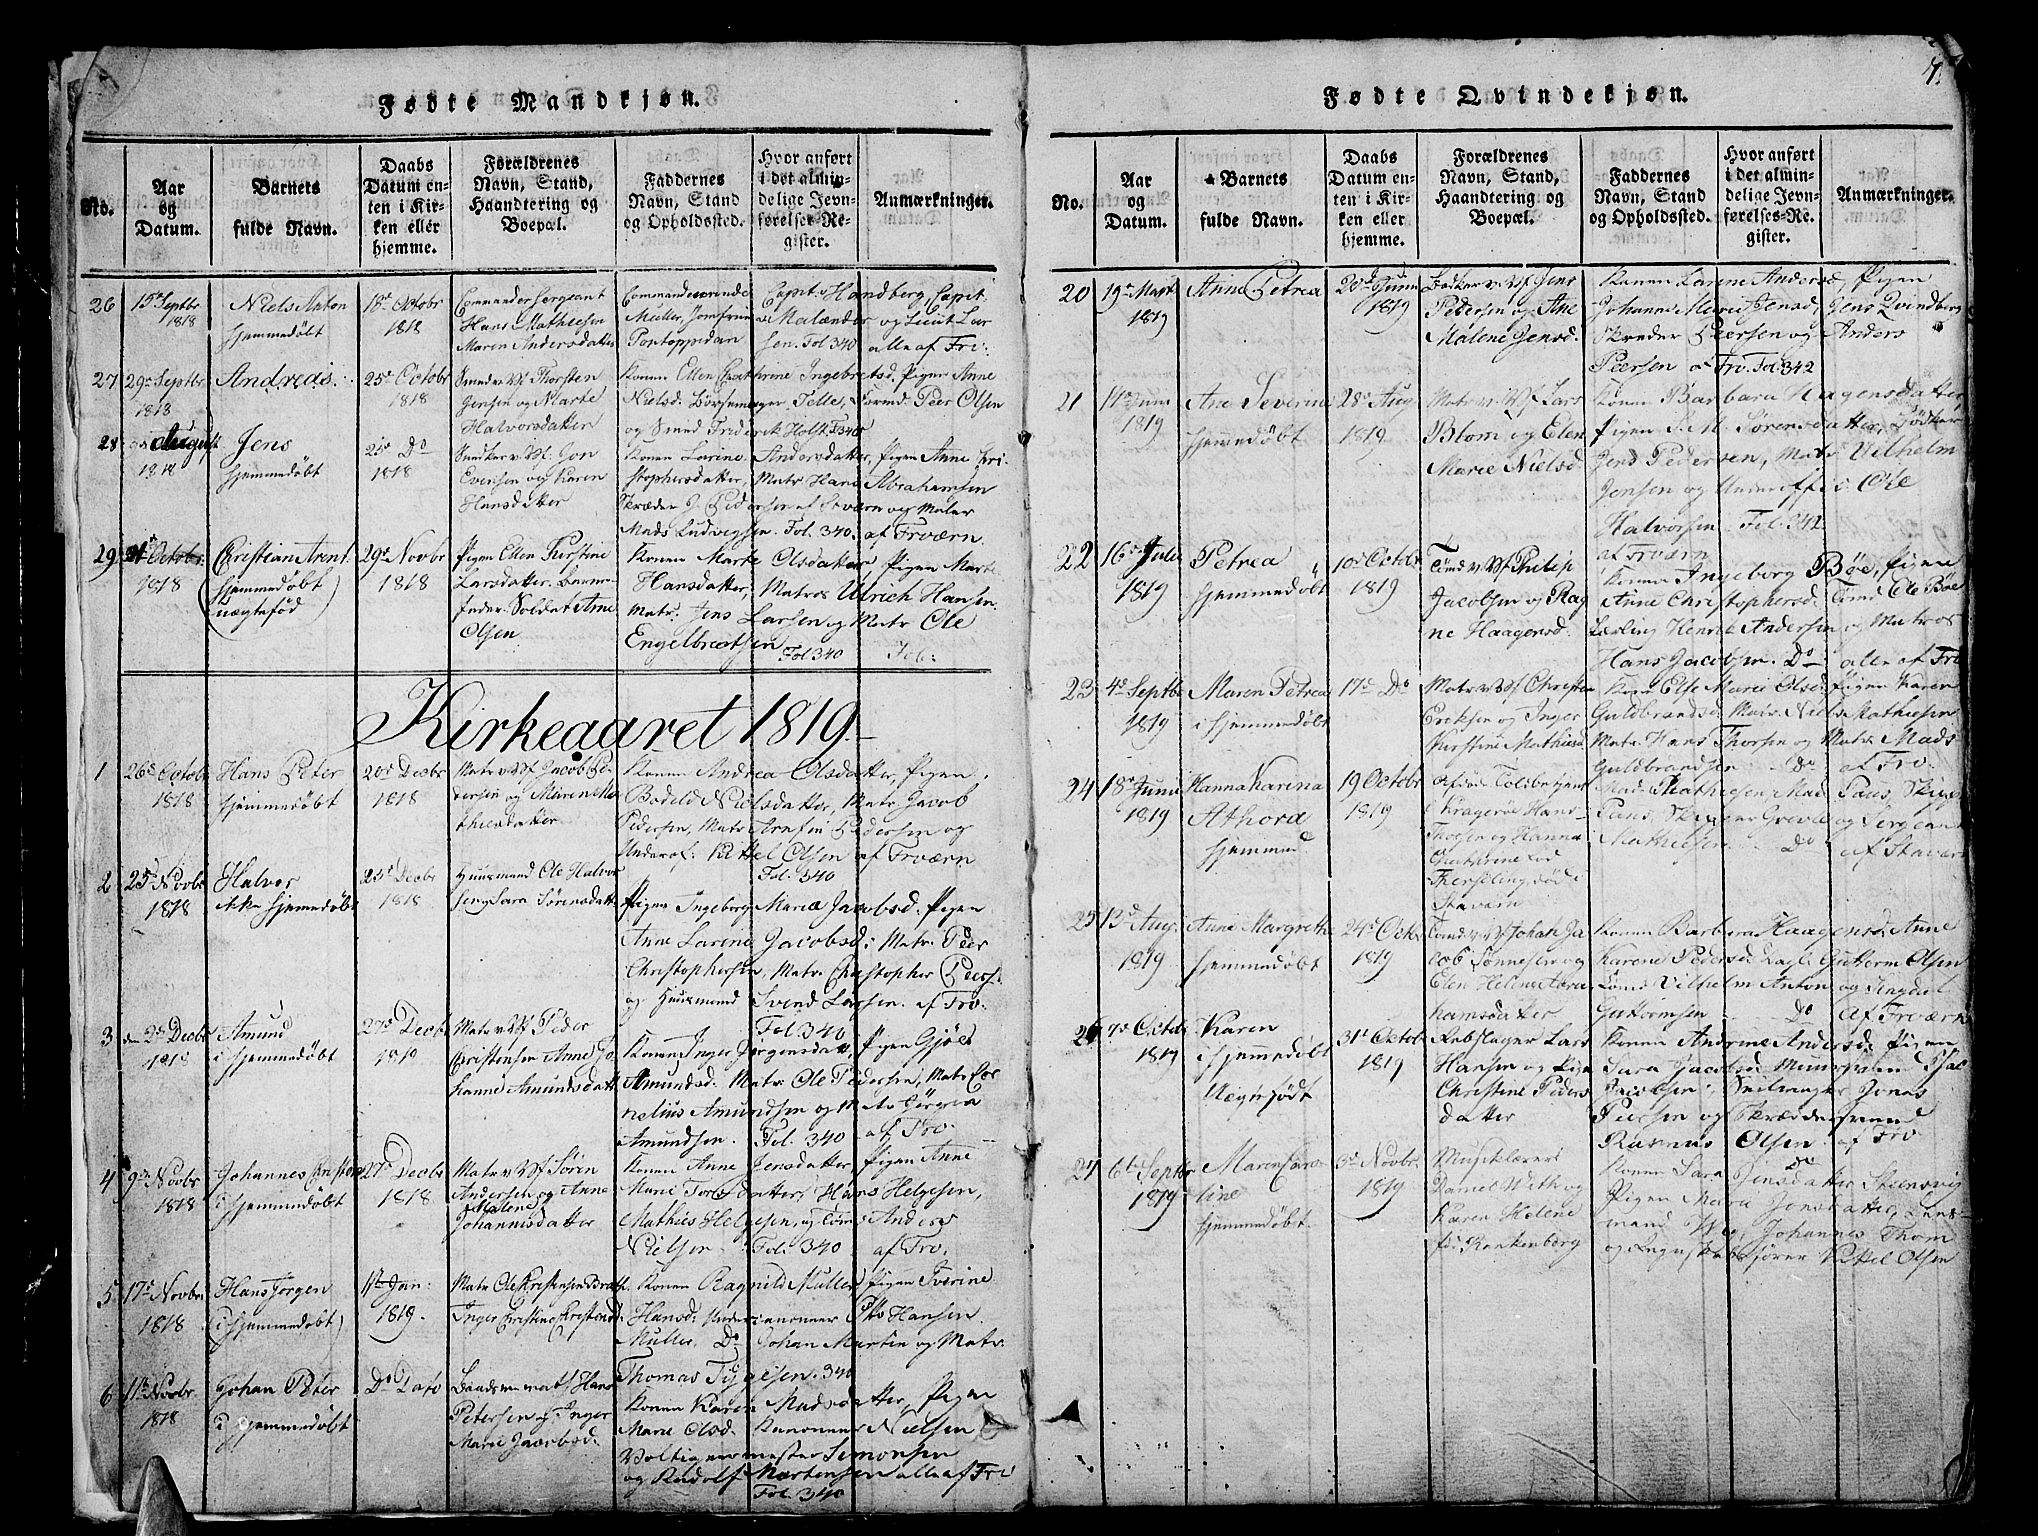 7.
Fødte Mandkjøn.
No.
Aar og Datum.
Barnets fulde Navn.
Daabs Datum enten i Kirken eller hjemme.
Forældrenes Navn, Stand, Haandtering og Boepæl.
Faddernes Navn, Stand og Opholdssted.
Hvor anført i det almindelige Jevnførelses-Register.
Anmærkninger.
26 15de Septbr 1818
Niels Anton hjemmedøbt
18de Octobr 1818
Commandeer Sergeant
Hans Mathiesen
Maren Andersdatter
Capit. Handberg, Capit.
Müller, Jomfru Malænder og Lieut Lar
Pontoppidan sen. Fol 340 alle af Frv:
27 29de Septbr 1818
Andreas.
25de Octobr 1818
Smed v. Vf Thorsten
Jensen og Marte
Halvorsdatter
Konen Ellen Cathrine Ingebretsd. Pigen Anne
Nielsd. Børsemager, Telle, Tømd: Peer Olsen
og Smed Friderik Holst F340
28 August 1818
Jens hjemmedøbt
25de Do 1818
Snedker v. Vf. Jon
Evensen og Karen
Hansdatter
Konen Larine Andersdatter, Pigen Anne Kri-
stophersdatter, Matr Hans Abrahamsen
Skræder J. Pedersen af Stværn og Matr
Mads Ludvigsen. Fol 340. af Frværn.
29 Octobr. 1818
Christian Arent (hjemmedøbt uægtefød)
29de Novbr 1818
Pigen Ellen Kirstine
Larsdatter. Barne-
fader: Soldat Arne
Olsen
Konen Marte Olsdatter Pigen Marte
Hansdatter, Matros Ulrich Hansen
Matr: Jens Larsen og Matr Ole
Engelbretsen Fol 340 Fol:
Kirkeaaret 1819.
1 26de Octobr 1818
Hans Peter hjemmedøbt
20de Decbr 1818
Matr v. Vf Jacob Pe-
dersen og Maren Ma-
thiesdatter
Konen Andrea Olsdatter, Pigen
Bodeld Nielsdatter, Matr Jacob
Pedersen, Matr Arnfin Pedersen og
Underof: Kittel Olsen af Frværn
Fol. 340
2 25de Novbr 1818
Halvor ikke hjemmedøbt
25de Decbr 1818
Huusmand Ole Halvor
sen og Sara Sørensdatt
Pigen Ingeborg Marie Jacobsd: Pigen
Anne Larine Jacobsd: Matr: Peer
Christophersen, Matr. Christopher Peers.
og Huusmand Svend Larsen. af Frv.
Fol 340
3 den 2de Decbr 1818
Amund i hjemmedøbt
27de Decbr 1819
Matr v. Vf. Peder
Christensen Anne Jo
hanne Amundsdatt
Konen Inger Jørgensdatt, Pigen Gjøel
Amundsd: Matr. Ole Pedersen, Matr Cor
nelius Amundsen og Matr Jørgen
Amundsen. Fol. 340 af Frv.
4 9de Novbr 1818
Johannes hjemmedøbt
27de Decbr 1818
Matr v. Vf Søren
Andersen og Anne
Malene
Johannisdatter
Konen Anne Jensdatter, Pigen Anne
Marie Torsdatter, Hans Helgesen,
Mathies Helgesen, og Tøm: Anders
Nielsen. Fol. 340 af Frv.
5 17de Novbr 1818
Hans Jørgen (i hjemmedøbt)
1ste Jan: 1819.
Matr Ole Kristensen
Inger Christine Kristensd
Konen Ragnild Müller, Pigen Tverine
Hansd: Under canoneer Hansen
Müller, Do Johan Martin og Matr.
Thomas 340
6 11te Novbr. 1818
Johan Peter i hjemmedøbt
Do Dato
Baadsmansmat Hans
Petersen og Inger
Marie Jacobsd:
Konen Karen Madsdatter, Pigen
Marie Olsd. Kanoneer Nielsen
Simonsen
og Rudolf Mortensen alle af Frv
Fol. 340
Fødte Qvindekjøn.
No.
Aar og Datum.
Barnets fulde Navn.
Daabs Datum enten i Kirken eller hjemme.
Forældrenes Navn, Stand, Haandtering og Boepæl.
Faddernes Navn, Stand og Opholdssted.
Hvor anført i det almindelige Jevnførelses-Register.
Anmærkninger.
20 19de Mart 1819
Anne Petrea
20de Juni 1819
Bødker v. Vf Jens
Petersen og Ane
Malene Jensd.
Konen Larine Andersd, Pigen
Johanne Marie Jensd, Jens Qvindberg
Skræder Peersen og Anders
Peersen af Frv. Fol. 342
21 Juni 1819
Ane Severine hjemmedøbt
28de Aug 1819
Matr v. Vf Lars
Blom og Elen
Marie Nielsd.
Konen Barbara Hagensdatter,
Pigen S. M. Sørensdatter, Bødker
Jens Pedersen, Matr Vilhelm
Jensen og Underoffic: Ole
Halvorsen Fol. 342
af Frværn
22 16de Juli 1819
Petrea hjemmedøbt
10de Octobr 1819
Tømd v. Vf Philip
Jacobsen og Rag
ne Haagensd.
Konen Ingeborg Bøe, Pigen
Anne Christophersd. Tømd Ole Bøe
Lærling Henrik Andersen og Matros
Hans Jacobsen. Do alle af Frv
23 4de Septbr 1819
Maren Petrea i hjemmedøbt
17de Do
Matr v. Vf Christen
Eriksen og Inger
Kirstine Mathiesd
Konen Else Marie Olsd. Pigen Karen
Guldbrandsd. Matr. Niels Mathiesen
Matr. Hans Thorsen og Matr. Mads
Guldbrandsen Do af Frv.
24 18de Juni 1819
Hanna Karena Athora hjemmed
19 Octobr 1819
Toldbetjent
i Kragerøe Hans
Thoesen og Hanna
Cathrine fød
død i
Stavern
Mad. Mathiesen, Mad. Paus, Skiper
Paus, Skiper Greve og Sergeant
Mathiesen. Do af Stavern
25 13de Aug. 1819
Anne Margrethe hjemmedøbt
24de Octr 1819
Tømd v. Vf Johan Ja
cob Sønnesen og
Elen Helene Abra
hamsdatter
Konen Barbara Haagensd: Anne
Karene Pedersd Guttorm Olsen
Tømd Vilhelm Anton og
Guttormsen Do af Frværn
26 7de Octobr 1819
Karen i hjemmedøbt Uægtefødt
31te Octobr 1819
Rebslager Lars
Hansen og Pige
Christine Peders
datter
Konen Andrine Andersd: Pigen
Sara Jacobsd Isac
Jacobsen, Jonas
Peersen og Skrædersvend
Rasmus Olsen af Frv
Do
27 6te Septbr 1819
Maren Caroline hjemmedøbt
3de Novbr. 1819
Musiklærer
Daniel With og
Karen Helene
fød Krankenberg
Konen Sara Jensdatter Steensvig
Pigen Maria Jonsdatter, Huus-
mand Johannes Thom
og Regnskabsfører Kittel Olsen